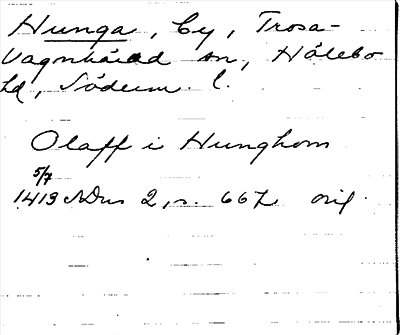 Hunga, by, Trosa-
Vagnhärad sn, Hölebo
hd, Söderm. l.
Olaff i Hunghom
5/7
1419 SDns 2, s. 667 orig.